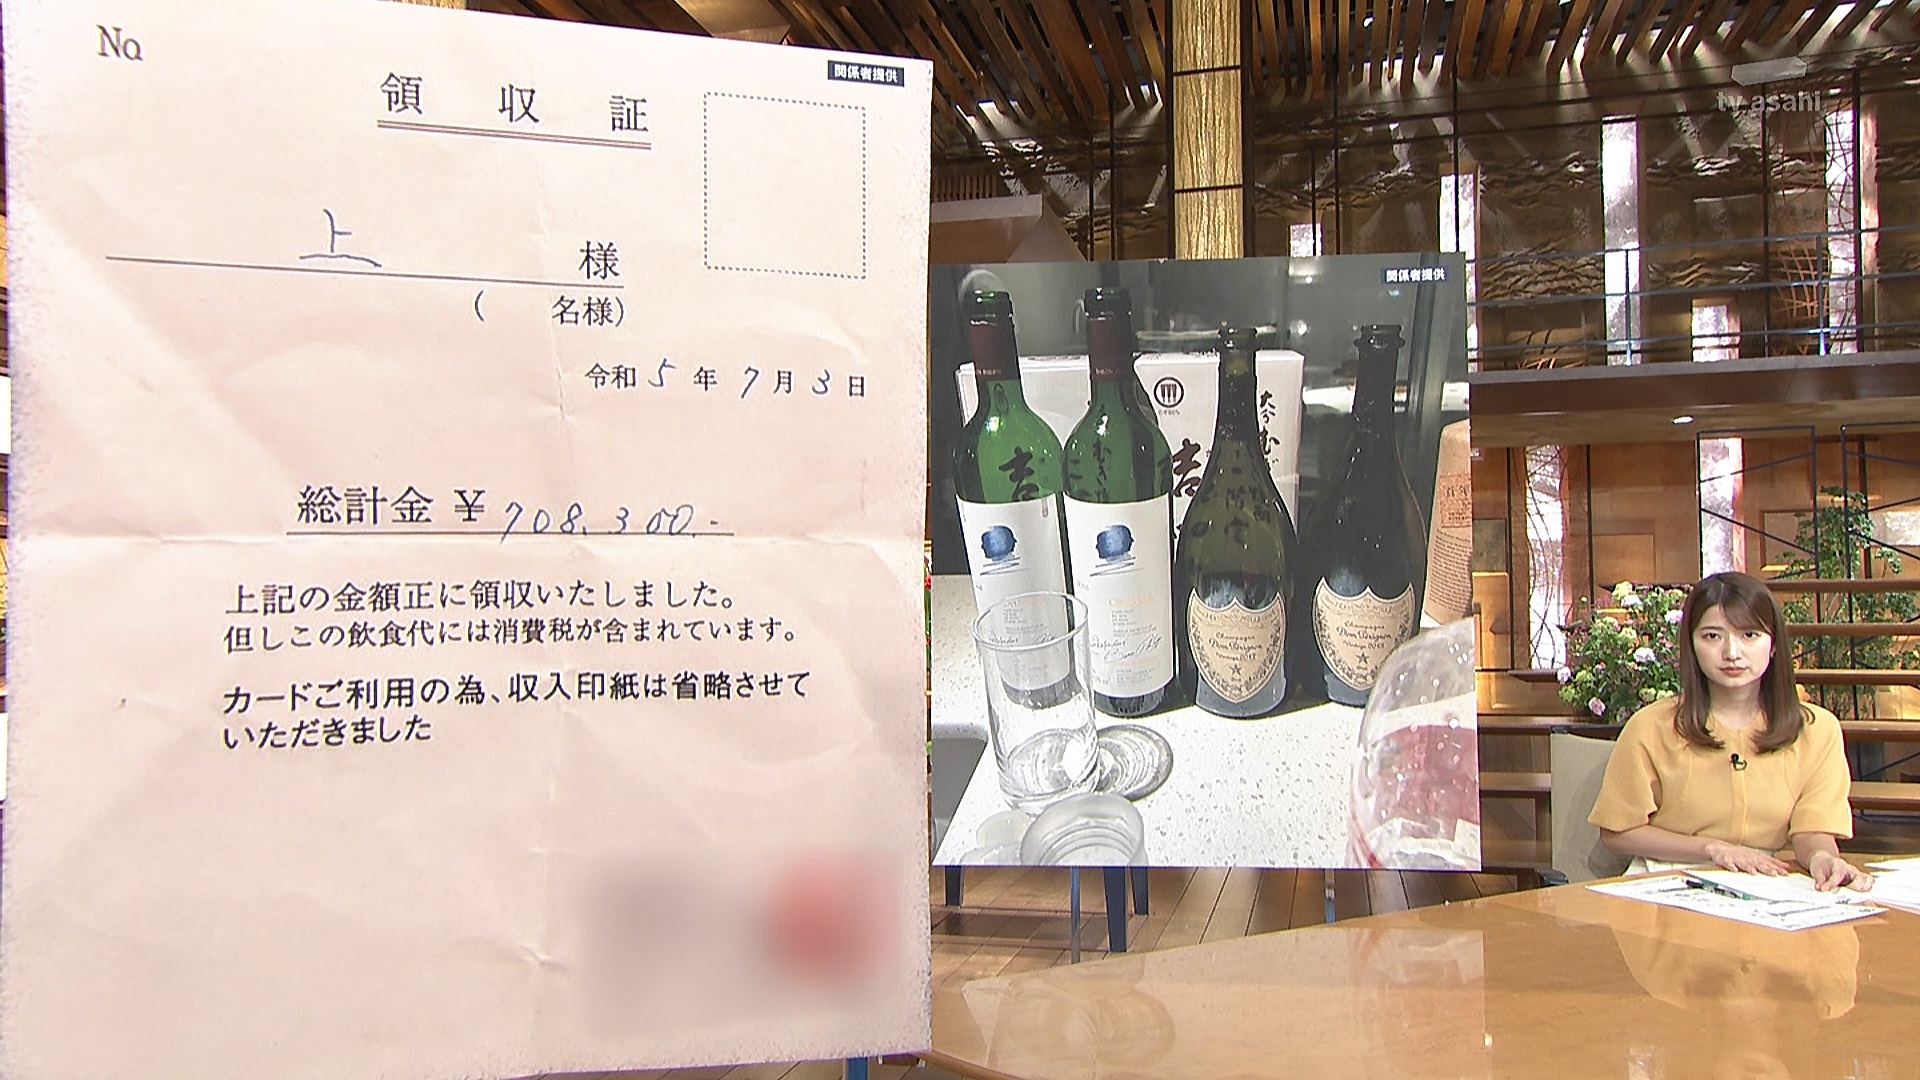 No
関係者提供
領収証
上 様
( 名様)
令和5年7月3日
総計金 ¥708,300.-
上記の金額正に領収いたしました。
但しこの飲食代には消費税が含まれています。
カードご利用の為、収入印紙は省略させて
いただきました
関係者提供
tv asahi
大分むぎ
吉
吉
Champagne
Dom Pérignon
Champagne
Dom Pérignon